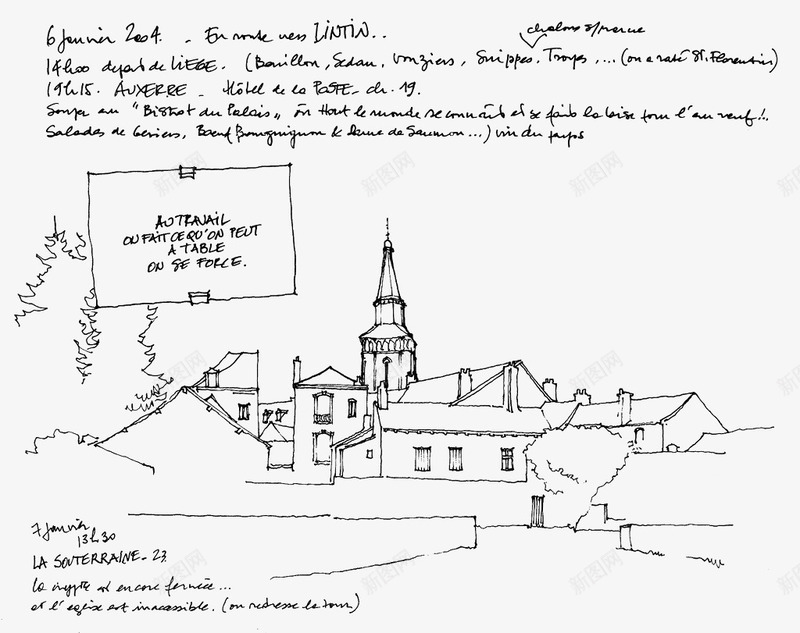 chalons s/marne
6 Janvier 2004. - En route vers LINTIN..
14h00 depart de LIEGE. (Bouillon, Sedan, Vouziers, Suippes, Troyes, ... (on a raté St. Florentin)
19h15. AUXERRE - Hôtel de la Poste - ch. 19.
Souper au "Bistrot du Palais" où tout le monde se connait et se fait la bise pour l'an neuf!..
Salades de Gesiers, Boeuf Bourguignon & de Saumon...) vin du pays
AU TRAVAIL
ON FAIT CE QU'ON PEUT
A TABLE
ON SE FORCE.
7 Janvier
13h30
LA SOUTERRAINE - 23.
la crypte est encore fermée...
et l'eglise est inaccessible. (on redresse la tour)
新图网